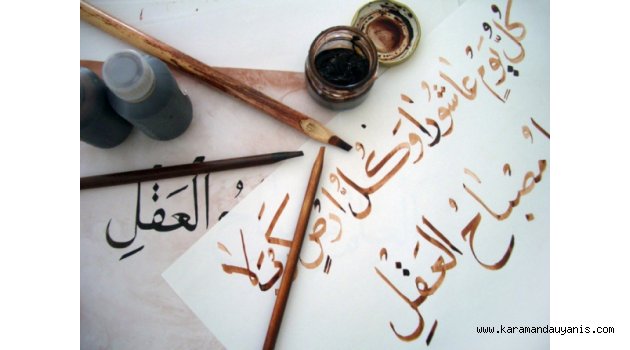 كُلُّ يَوْمٍ عَاشُورَا وَكُلُّ اَرْضٍ كَرْبَلَا
مِصْبَاحُ العَقْلِ
العَقْلِ
www.karamandauyanis.com